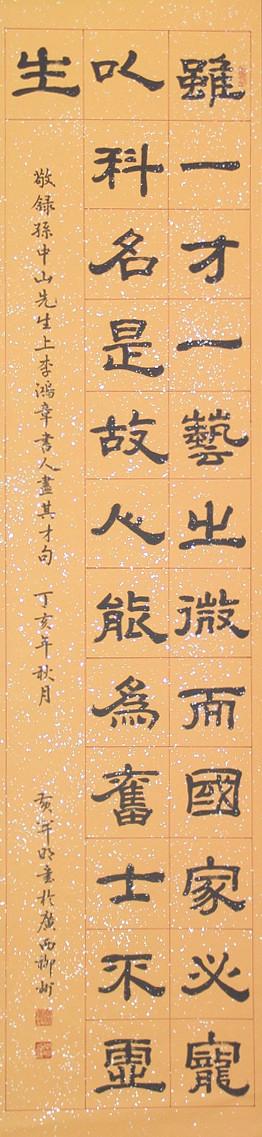 雖一才一藝之微而國家必寵
以科名是故人能為奮士不虛
生
敬録孫中山先生上李鴻章書人盡其才句 丁亥年秋月 書於廣西柳州